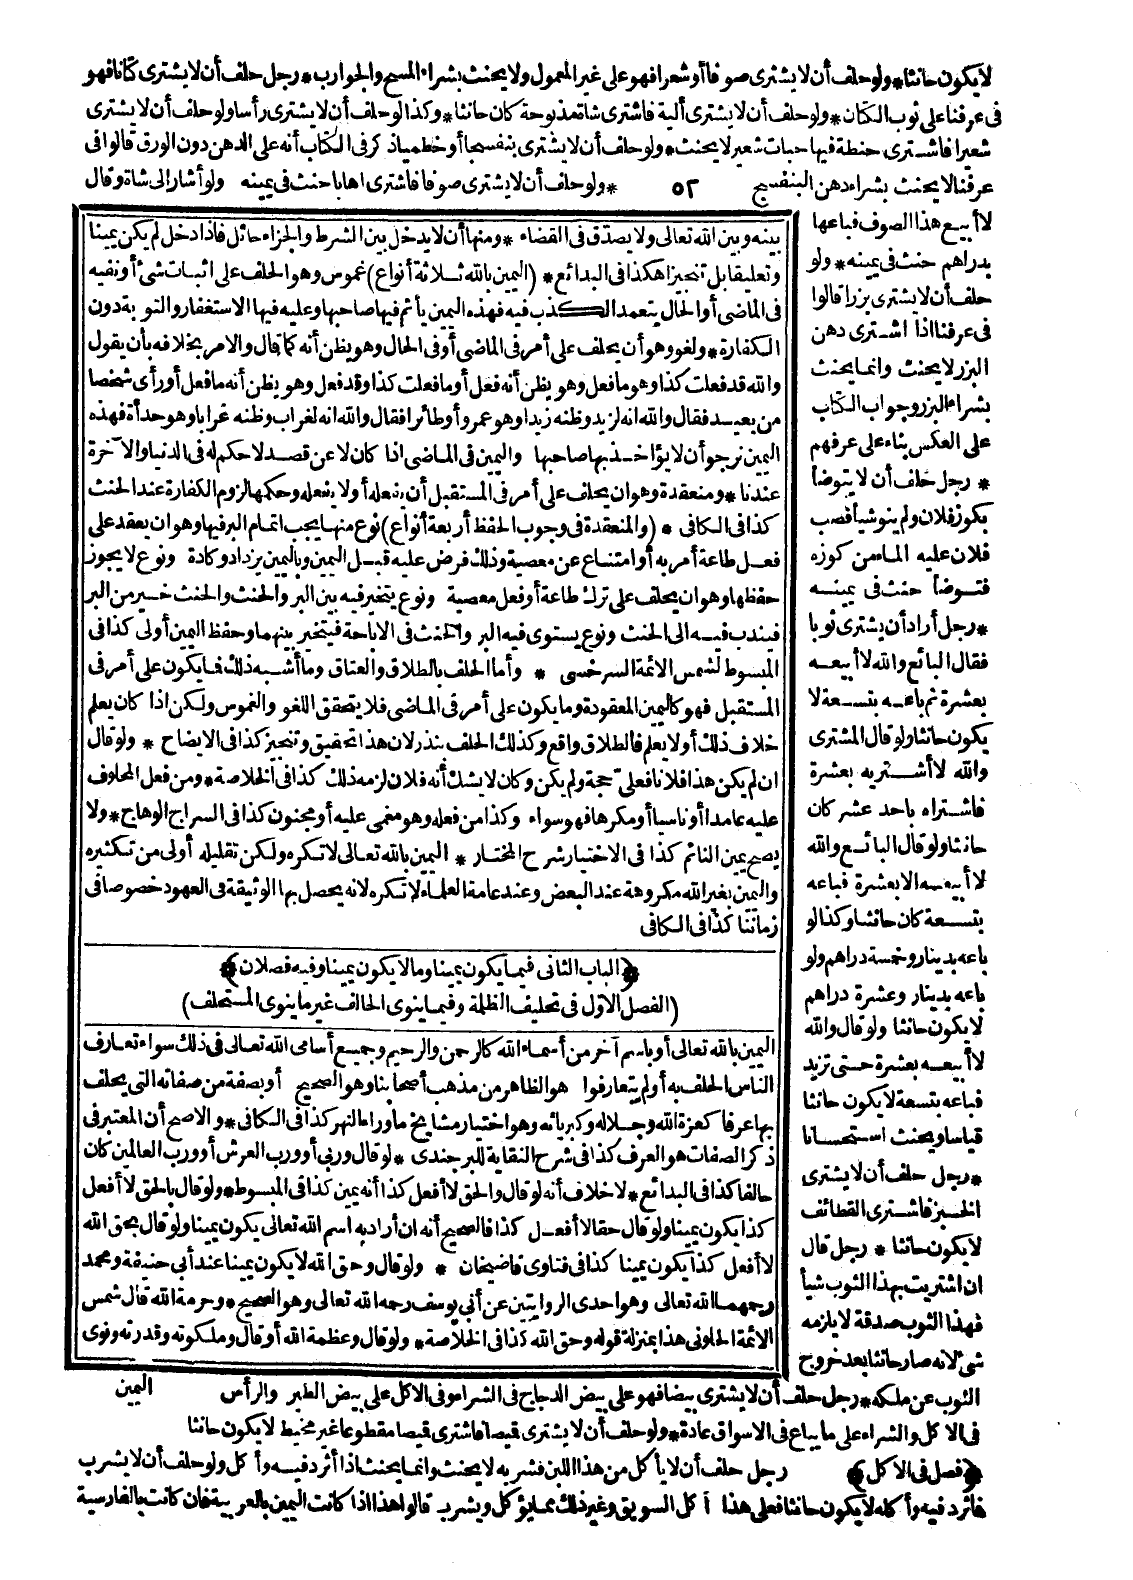 لا يكون حانثا * ولو حلف أن لا يشترى صوفا أو شعرا فهو على غير المعمول ولا يحنث بشراء المسح والجوارب * رجل حلف أن لا يشترى كتانا فهو
فى عرفنا على ثوب الكتان * ولو حلف أن لا يشترى ألية فاشترى شاة مذبوحة كان حانثا * وكذا لو حلف أن لا يشترى رأسا ولو حلف أن لا يشترى
شعيرا فاشترى حنطة فيها حبات شعير لا يحنث * ولو حلف أن لا يشترى بنفسجا أو خطميا ذكر فى الكتاب أنه على الدهن دون الورق قالوا فى
عرفنا لا يحنث بشراء دهن البنفسج ٥٢ * ولو حلف أن لا يشترى صوفا فاشترى اهابا حنث فى يمينه ولو أشار إلى شاة وقال
لا أبيع هذا الصوف فباعها
بدراهم حنث فى يمينه * ولو
حلف أن لا يشترى بزرا قالوا
فى عرفنا اذا اشترى دهن
البزر لا يحنث وانما يحنث
بشراء البزر وجواب الكتاب
على العكس بناء على عرفهم
* رجل حلف أن لا يتوضأ
بكوز فلان ولم ينو شيأ فصب
فلان عليه الماء من كوزه
فتوضأ حنث فى يمينه
* رجل أراد أن يشترى ثوبا
فقال البائع والله لا أبيعه
بعشرة ثم باعه بتسعة لا
يكون حانثا ولو قال المشترى
والله لا أشتريه بعشرة
فاشتراه باحد عشر كان
حانثا ولو قال البائع والله
لا أبيعه الا بعشرة فباعه
بتسعة كان حانثا وكذا لو
باعه بدينار وخمسة دراهم ولو
باعه بدينار وعشرة دراهم
لا يكون حانثا ولو قال والله
لا أبيعه بعشرة حتى تزيد
فباعه بتسعة لا يكون حانثا
قياسا ويحنث استحسانا
* رجل حلف أن لا يشترى
الخبز فاشترى القطائف
لا يكون حانثا * رجل قال
ان اشتريت بهذا الثوب شيأ
فهذا الثوب صدقة لا يلزمه
شئ لانه صار حانثا بعد خروج
بينه وبين الله تعالى ولا يصدق فى القضاء * ومنها أن لا يدخل بين الشرط والجزاء حائل فاذا دخل لم يكن يمينا
وتعليقا بل تنجيزا هكذا فى البدائع * (اليمين بالله ثلاثة أنواع) غموس وهو الحلف على اثبات شئ أو نفيه
فى الماضى أو الحال يتعمد الكذب فيه فهذه اليمين يأثم فيها صاحبها وعليه فيها الاستغفار والتوبة دون
الكفارة * ولغو وهو أن يحلف على أمر فى الماضى أو فى الحال وهو يظن أنه كما قال والامر بخلافه بأن يقول
والله قد فعلت كذا وهو ما فعل وهو يظن أنه فعل أو ما فعلت كذا وقد فعل وهو يظن أنه ما فعل أو رأى شخصا
من بعيد فقال والله انه لزيد وظنه زيدا وهو عمرو أو طائرا فقال والله انه لغراب وظنه غرابا وهو حدأة فهذه
اليمين نرجو أن لا يؤاخذ بها صاحبها واليمين فى الماضى اذا كان لا عن قصد لا حكم له فى الدنيا والآخرة
عندنا * ومنعقدة وهو ان يحلف على أمر فى المستقبل أن يفعله أو لا يفعله وحكمها لزوم الكفارة عند الحنث
كذا فى الكافى * (والمنعقدة فى وجوب الحفظ أربعة أنواع) نوع منها يجب اتمام البر فيها وهو ان يعقد على
فعل طاعة أمر به أو امتناع عن معصية وذلك فرض عليه قبل اليمين وباليمين يزداد وكادة ونوع لا يجوز
حفظها وهو ان يحلف على ترك طاعة أو فعل معصية ونوع يتخير فيه بين البر والحنث والحنث خير من البر
فيندب فيه الى الحنث ونوع يستوى فيه البر والحنث فى الاباحة فيتخير بينهما وحفظ اليمين أولى كذا فى
المبسوط لشمس الائمة السرخسى * وأما الحلف بالطلاق والعتاق وما أشبه ذلك فما يكون على أمر فى
المستقبل فهو كاليمين المعقودة وما يكون على أمر فى الماضى فلا يتحقق اللغو والغموس ولكن اذا كان يعلم
خلاف ذلك أو لا يعلم فالطلاق واقع وكذلك الحلف بنذر لان هذا تحقيق وتنجيز كذا فى الايضاح * ولو قال
ان لم يكن هذا فلانا فعلى حجة ولم يكن وكان لا يشك أنه فلان لزمه ذلك كذا فى الخلاصة * ومن فعل المحلوف
عليه عامدا أو ناسيا أو مكرها فهو سواء وكذا من فعله وهو مغمى عليه أو مجنون كذا فى السراج الوهاج * ولا
يصح يمين النائم كذا فى الاختيار شرح المختار * اليمين بالله تعالى لا تكره ولكن تقليله أولى من تكثيره
واليمين بغير الله مكروهة عند البعض وعند عامة العلماء لا تكره لانه يحصل بها الوثيقة فى العهود خصوصا فى
زماننا كذا فى الكافى
﴿الباب الثانى فيما يكون يمينا وما لا يكون يمينا وفيه فصلان﴾
(الفصل الاول فى تحليف الظلمة وفيما ينوى الحالف غير ما ينوى المستحلف)
اليمين بالله تعالى أو باسم آخر من أسماء الله كالرحمن والرحيم وجميع أسامى الله تعالى فى ذلك سواء تعارف
الناس الحلف به أو لم يتعارفوا هو الظاهر من مذهب أصحابنا وهو الصحيح أو بصفة من صفاته التى يحلف
بها عرفا كعزة الله وجلاله وكبريائه وهو اختيار مشايخ ما وراء النهر كذا فى الكافى * والاصح أن المعتبر فى
ذكر الصفات هو العرف كذا فى شرح النقاية للبرجندى * لو قال وربى أو ورب العرش أو ورب العالمين كان
حالفا كذا فى البدائع * لا خلاف أنه لو قال والحق لا أفعل كذا أنه يمين كذا فى المبسوط * ولو قال بالحق لا أفعل
كذا يكون يمينا ولو قال حقا لا أفعل كذا فالصحيح أنه ان أراد به اسم الله تعالى يكون يمينا ولو قال بحق الله
لا أفعل كذا يكون يمينا كذا فى فتاوى قاضيخان * ولو قال وحق الله لا يكون يمينا عند أبى حنيفة ومحمد
رحمهما الله تعالى وهو احدى الروايتين عن أبى يوسف رحمه الله تعالى وهو الصحيح * وحرمة الله قال شمس
الائمة الحلوانى هذا بمنزلة قوله وحق الله كذا فى الخلاصة * ولو قال وعظمة الله أو قال وملكوته وقدرته ونوى
اليمين
الثوب عن ملكه * رجل حلف أن لا يشترى بيضا فهو على بيض الدجاج فى الشراء وفى الاكل على بيض الطير والرأس
فى الاكل والشراء على ما يباع فى الاسواق عادة * ولو حلف أن لا يشترى قميصا فاشترى قميصا مقطوعا غير مخيط لا يكون حانثا
﴿فصل فى الاكل﴾ رجل حلف أن لا يأكل من هذا اللبن فشربه لا يحنث وانما يحنث اذا أثرد فيه وأكل ولو حلف أن لا يشرب
فاثرد فيه وأكله لا يكون حانثا فعلى هذا أكل السويق وغير ذلك مما يؤكل ويشرب قالوا هذا اذا كانت اليمين بالعربية فان كانت بالفارسية